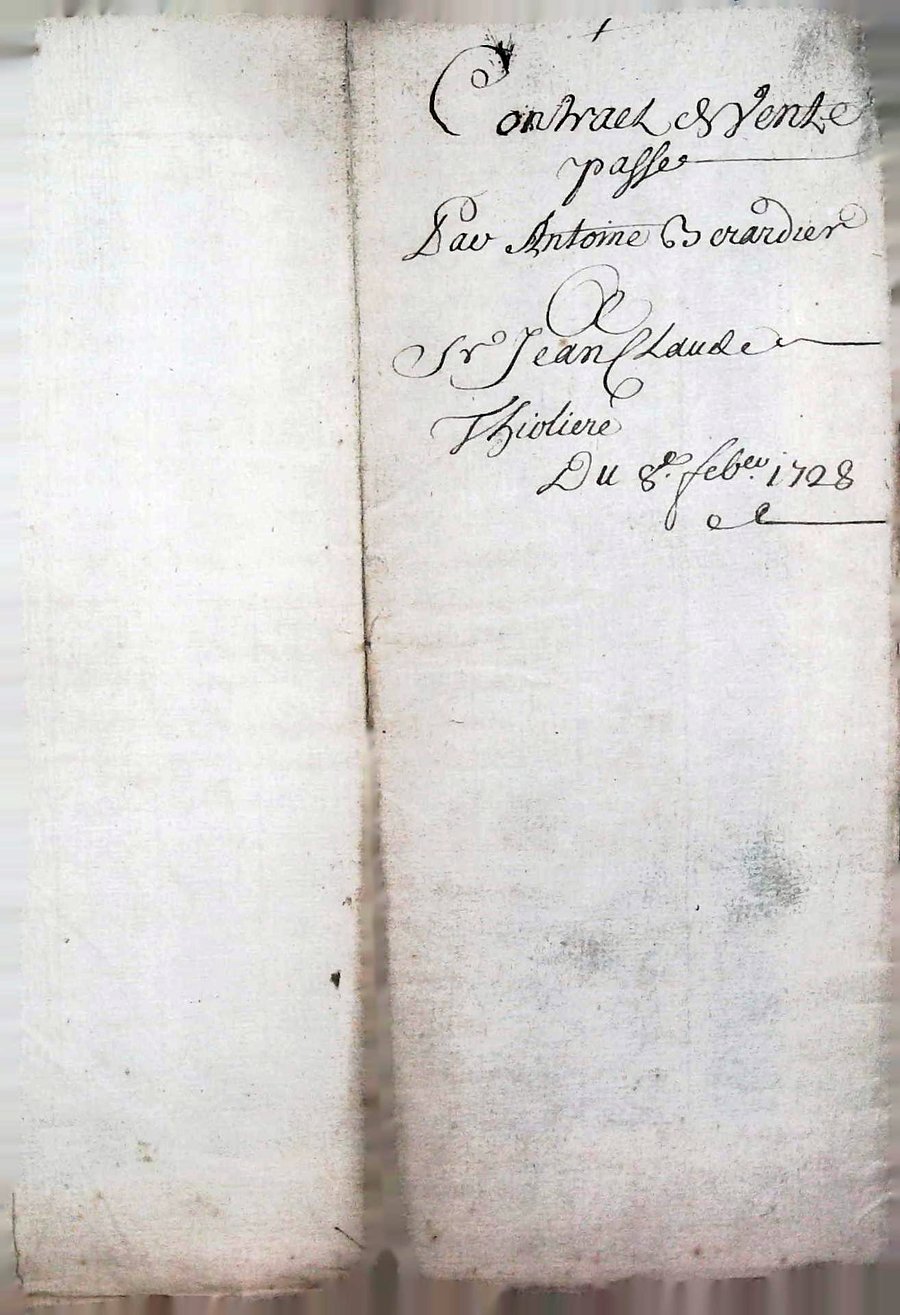 Contract de Vente
passé
Par Antoine Berardier
A
Sr Jean Claude
Thioliere
Du 8e. feber. 1728